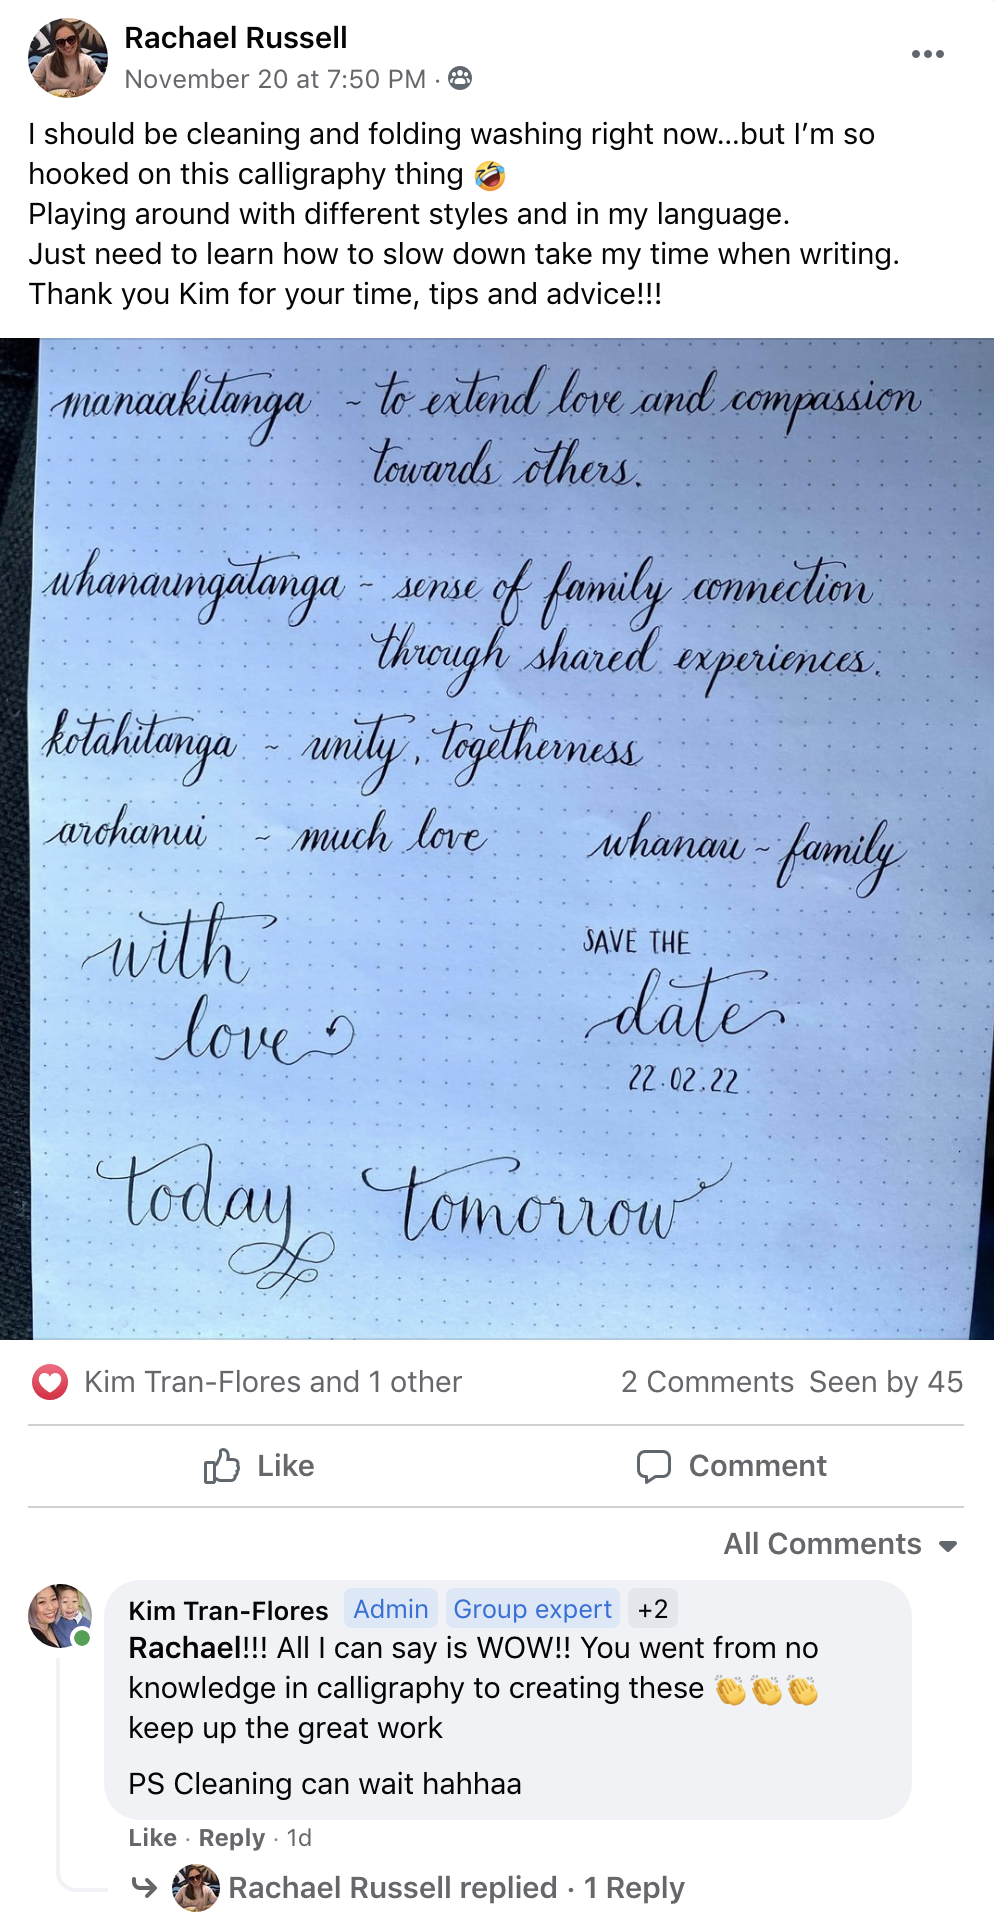 Rachael Russell
November 20 at 7:50 PM ·
I should be cleaning and folding washing right now...but I’m so
hooked on this calligraphy thing 🤣
Playing around with different styles and in my language.
Just need to learn how to slow down take my time when writing.
Thank you Kim for your time, tips and advice!!!
manaakitanga ~ to extend love and compassion
towards others.
whanaungatanga ~ sense of family connection
through shared experiences.
kotahitanga ~ unity, togetherness
arohanui ~ much love whanau ~ family
with
love
SAVE THE
date
22.02.22
today tomorrow
Kim Tran-Flores and 1 other 2 Comments Seen by 45
Like Comment
All Comments
Kim Tran-Flores Admin Group expert +2
Rachael!!! All I can say is WOW!! You went from no
knowledge in calligraphy to creating these 👏👏👏
keep up the great work
PS Cleaning can wait hahhaa
Like · Reply · 1d
Rachael Russell replied · 1 Reply